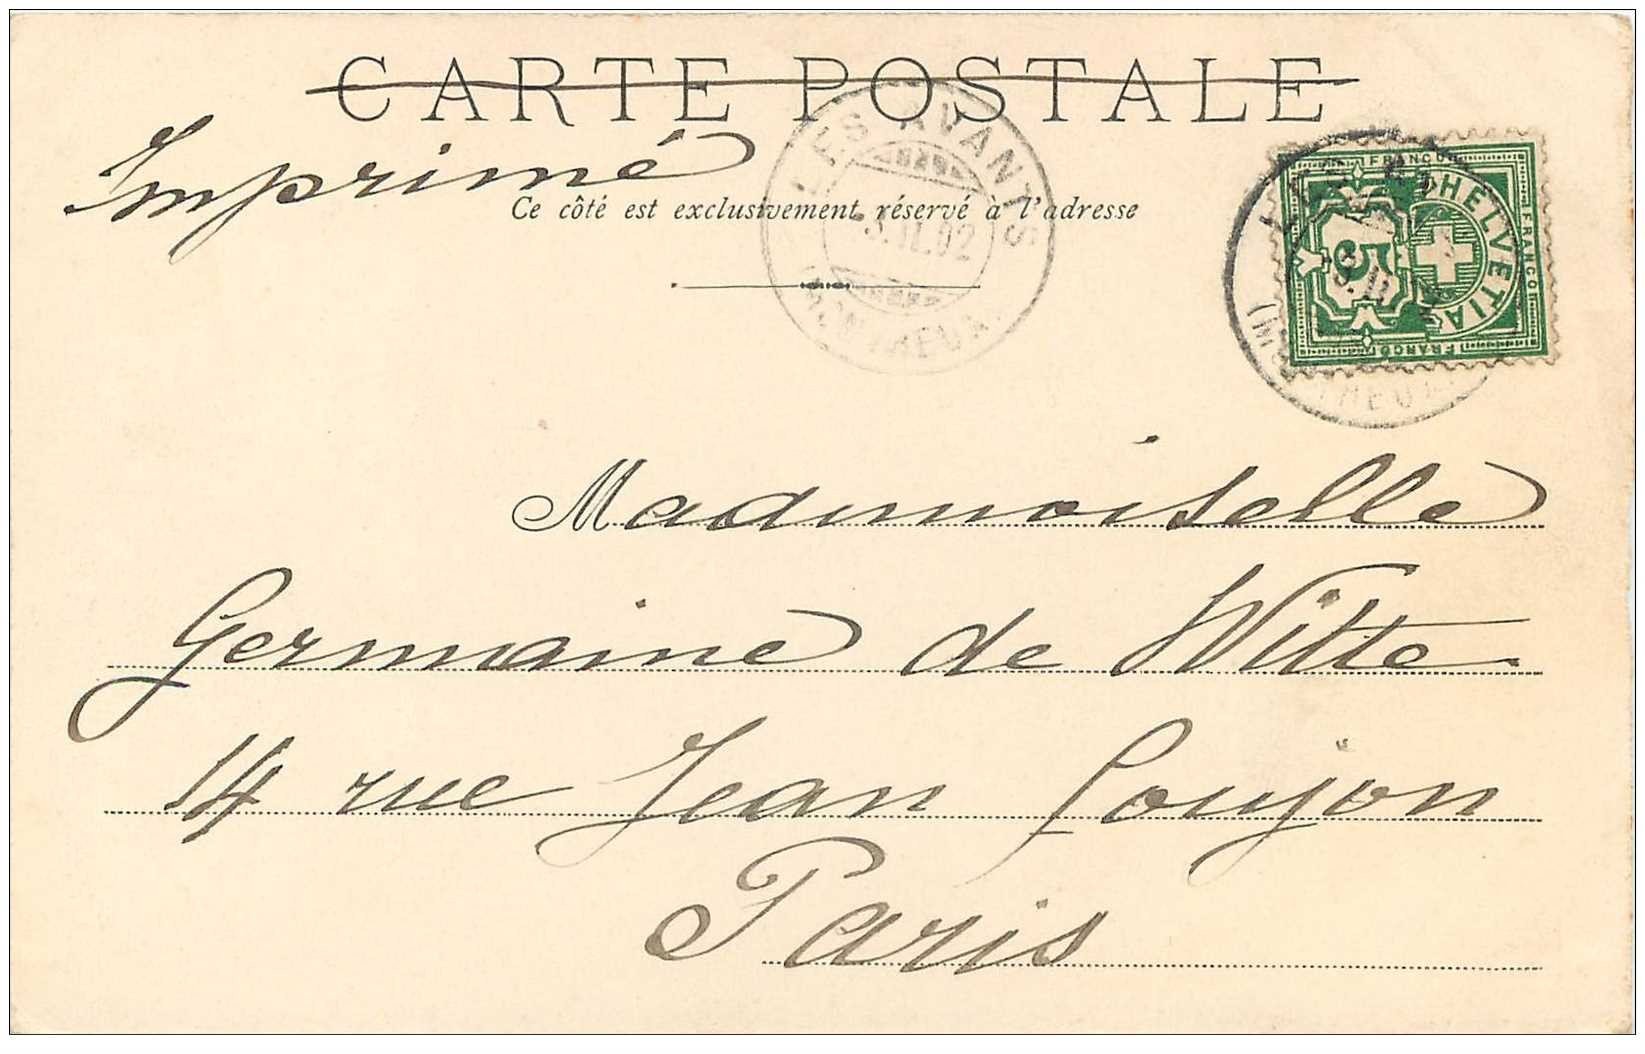 CARTE POSTALE
Imprimé
Ce côté est exclusivement réservé à l'adresse
LES AVANTS
3.II.02
(MONTREUX)
FRANCO HELVETIA FRANCO FRANCO
5
Mademoiselle
Germaine de Witte
14 rue Jean Goujon
Paris